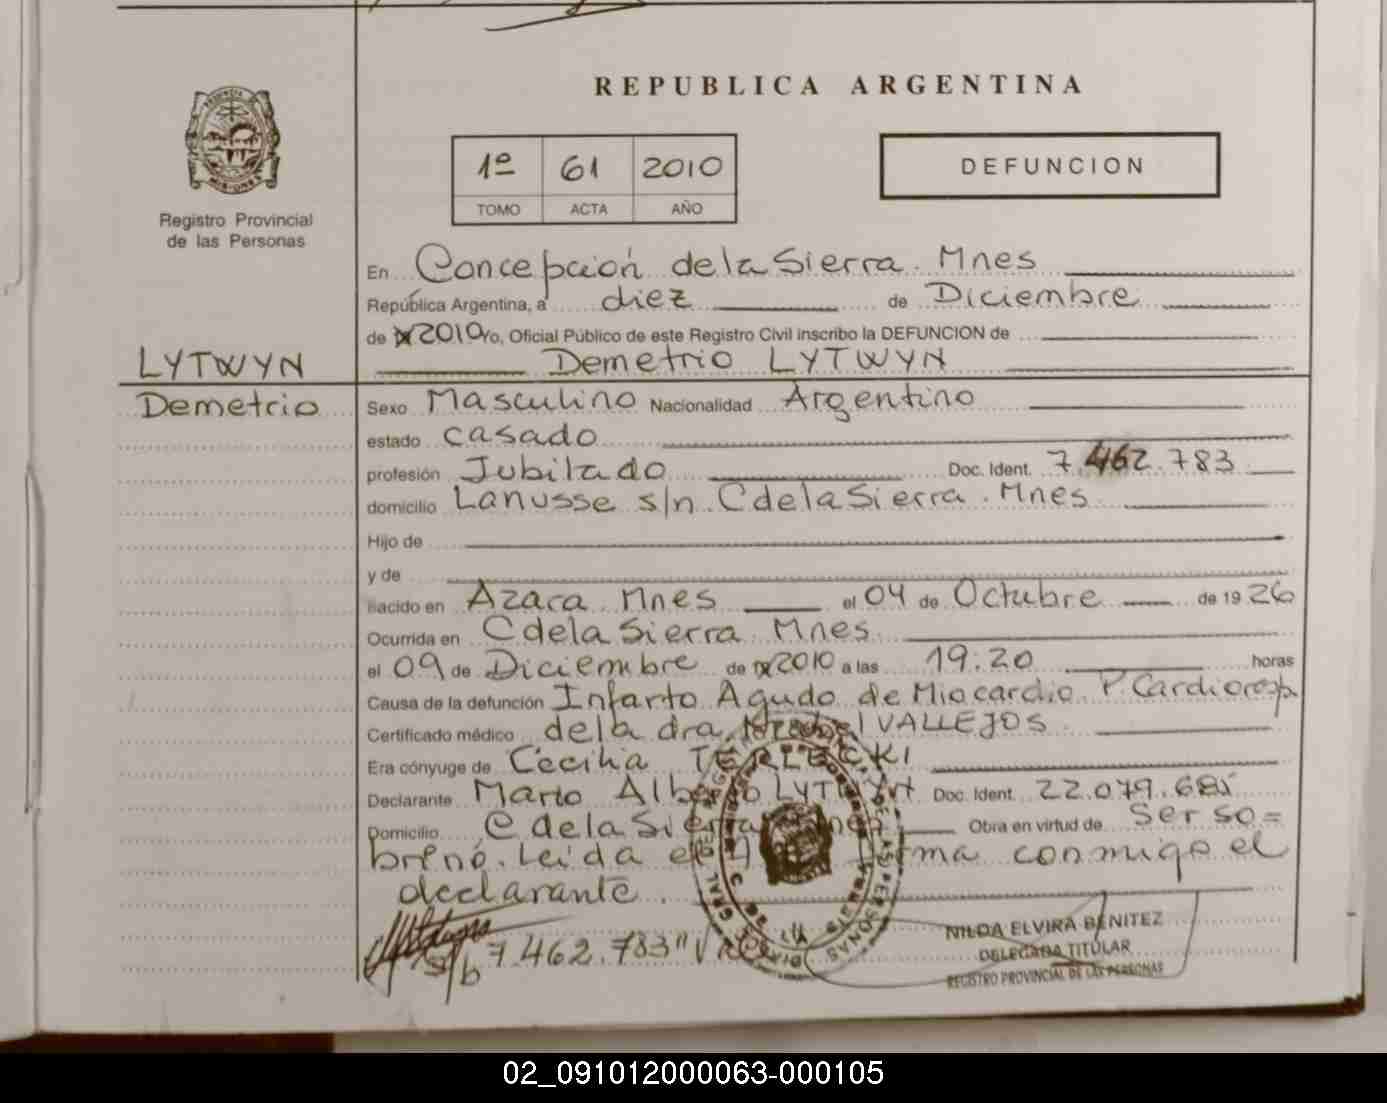 REPUBLICA ARGENTINA
PROVINCIA DE
MISIONES
Registro Provincial
de las Personas
1º 61 2010
TOMO ACTA AÑO
DEFUNCION
En Concepción de la Sierra. Mnes
República Argentina, a diez de Diciembre
de 2010 Yo, Oficial Público de este Registro Civil inscribo la DEFUNCION de
LYTWYN
Demetrio LYTWYN
Demetrio
Sexo Masculino Nacionalidad Argentino
estado casado
profesión Jubilado Doc. Ident. 7.462.783
domicilio Lanusse s/n. C de la Sierra. Mnes
Hijo de
y de
nacido en Azara Mnes el 04 de Octubre de 1926
Ocurrida en C de la Sierra Mnes
el 09 de Diciembre de 2010 a las 19:20 horas
Causa de la defunción Infarto Agudo de Miocardio. P. Cardioresp.
Certificado médico de la dra. VALLEJOS
Era cónyuge de Cecilia TERLECKI
Declarante Mario Alberto LYTWYN Doc. Ident. 22.079.681
Domicilio C de la Sierra Mnes Obra en virtud de Ser so=
brino. Leida el Acta firma conmigo el
declarante.
s/b 7.462.783 "Vale"
NILDA ELVIRA BENITEZ
DELEGADA TITULAR
REGISTRO PROVINCIAL DE LAS PERSONAS
02_091012000063-000105